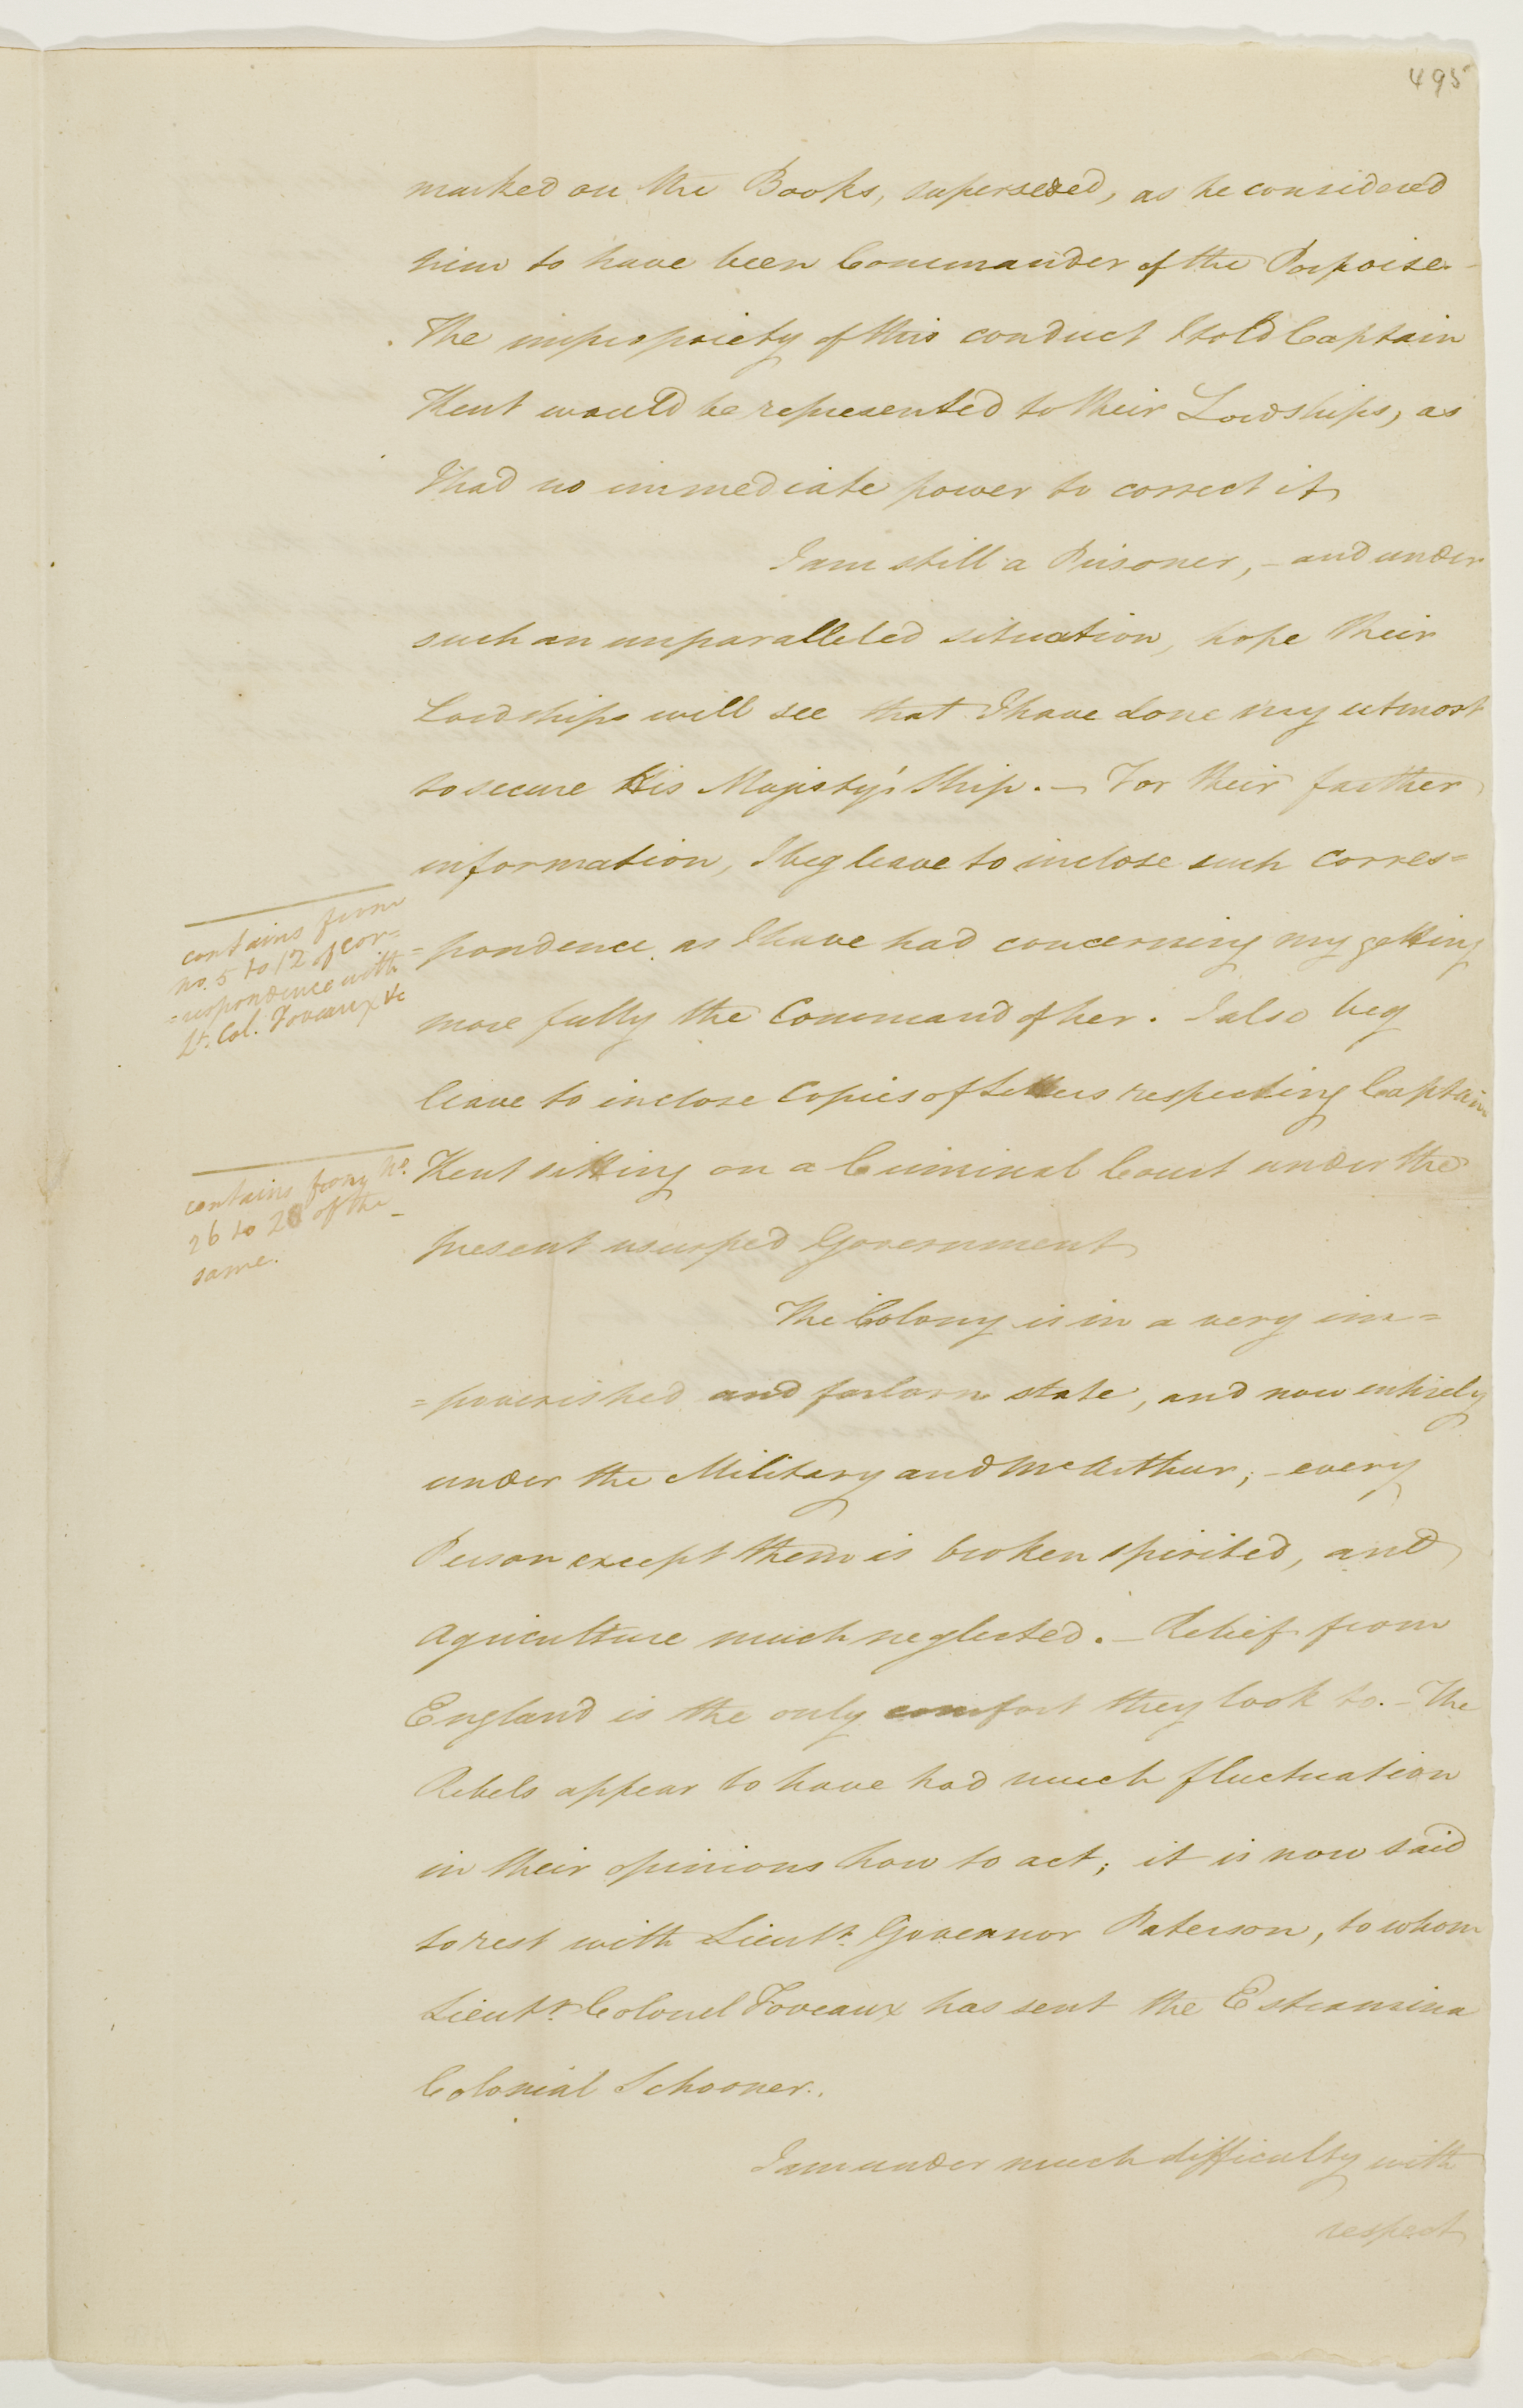 495
marked on the Books, superseded, as he considered
him to have been Commander of the Porpoise. -
The impropriety of this conduct I told Captain
Kent would be represented to their Lordships, as
I had no immediate power to correct it
I am still a Prisoner, - and under
such an unparalleled situation, hope their
Lordships will see that I have done my utmost
to secure His Majesty's Ship. - For their farther
information, I beg leave to inclose such corres=
contains from
no. 5 to 12 of cor=
=respondence with
Lt. Col. Foveaux &c
=pondence as I have had concerning my getting
more fully the Command of her. I also beg
leave to inclose Copies of Letters respecting Captain
contains from No.
26 to 28 of the
same.
Kent sitting on a Criminal Court under the
present usurped Government
The Colony is in a very im=
=poverished and forlorn state, and now entirely
under the Military and McArthur; - every
Person except them is broken spirited, and
Agriculture much neglected. - Relief from
England is the only comfort they look to. - The
Rebels appear to have had much fluctuation
in their opinions how to act; it is now said
to rest with Lieutt. Governor Paterson, to whom
Lieutt. Colonel Foveaux has sent the Estramina
Colonial Schooner.
I am under much difficulty with
respect